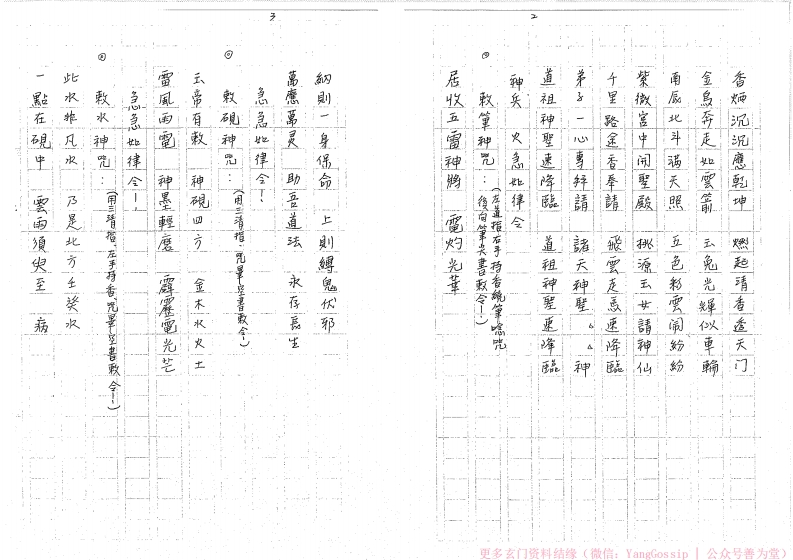 2
香炳沉沉應乾坤 燃起清香透天门
金烏奔走如雲箭 玉兔光輝似車輪
南辰北斗滿天照 五色彩雲鬧紛紛
紫微宮中開聖殿 桃源玉女請神仙
千里路途香奉請 飛雲走馬速降臨
弟子一心專拜請 諸天神聖△△神
道祖神聖速降臨 道祖神聖速降臨
神兵 火急如律令
敕筆神咒：(左道指右手持香繞筆唸咒後向筆尖書敕令！)
居收五雷神將 電灼光華
3
納則一身保命 上則縛鬼伏邪
萬應萬灵 助吾道法 永存長生
急急如律令！
敕硯神咒：(用三清指、咒畢空書敕令！)
玉帝有敕 神硯四方 金木水火土
雷風雨電 神墨輕磨 霹靂電光芒
急急如律令！
敕水神咒：(用三清指、左手持香、咒畢空書敕令！)
此水非凡水 乃是北方壬癸水
一點在硯中 雲雨須臾至 病
更多玄门资料结缘（微信：YangGossip | 公众号善为堂）